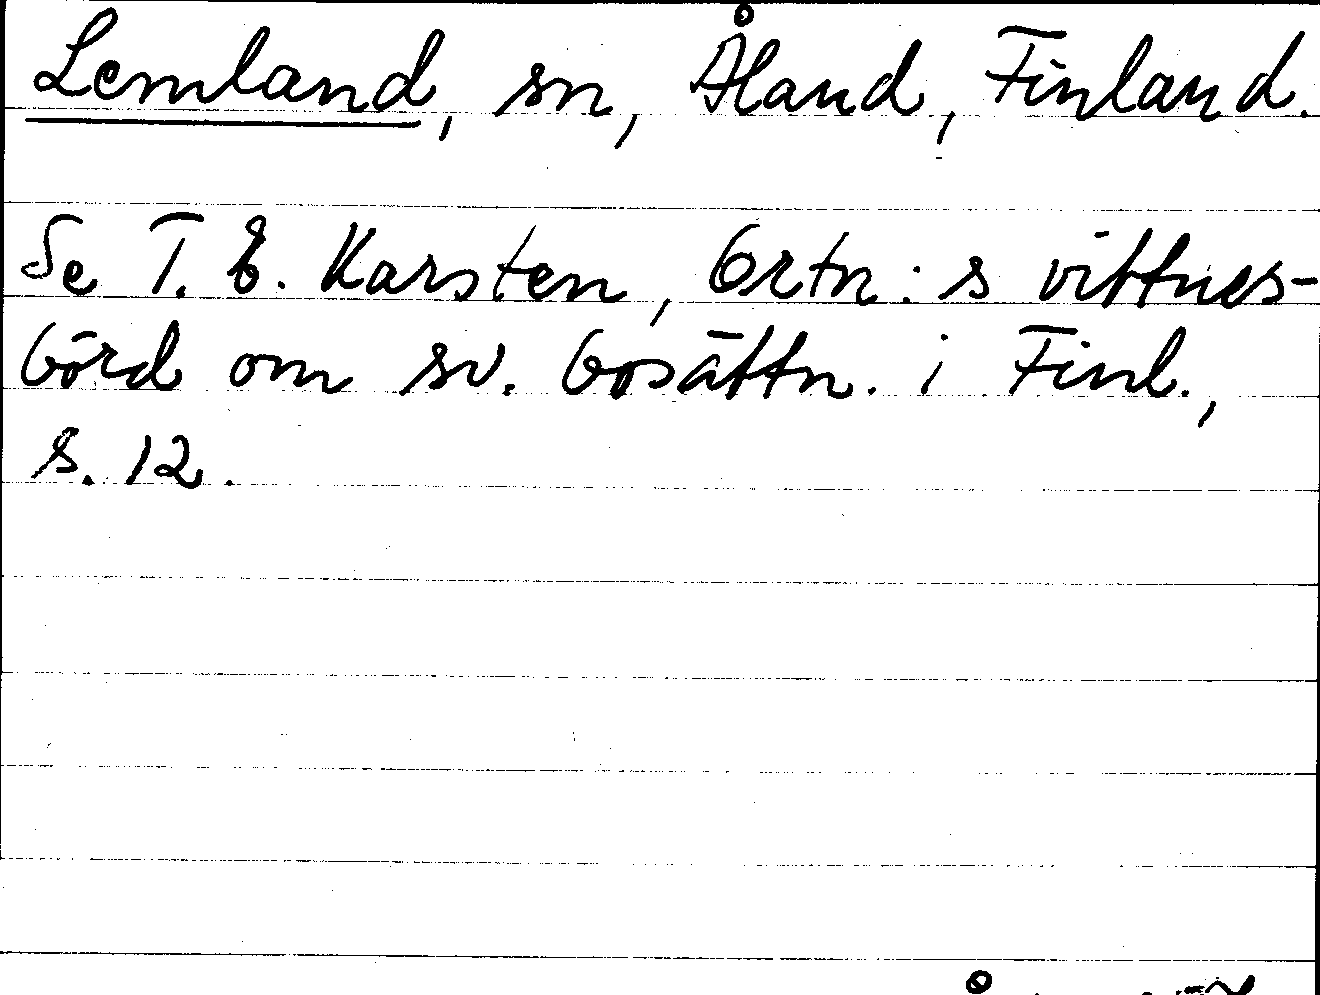 Lemland, sn, Åland, Finland.
Se T. E. Karsten, Ortn:s vittnes-
börd om sv. bosättn. i Finl.,
s. 12.